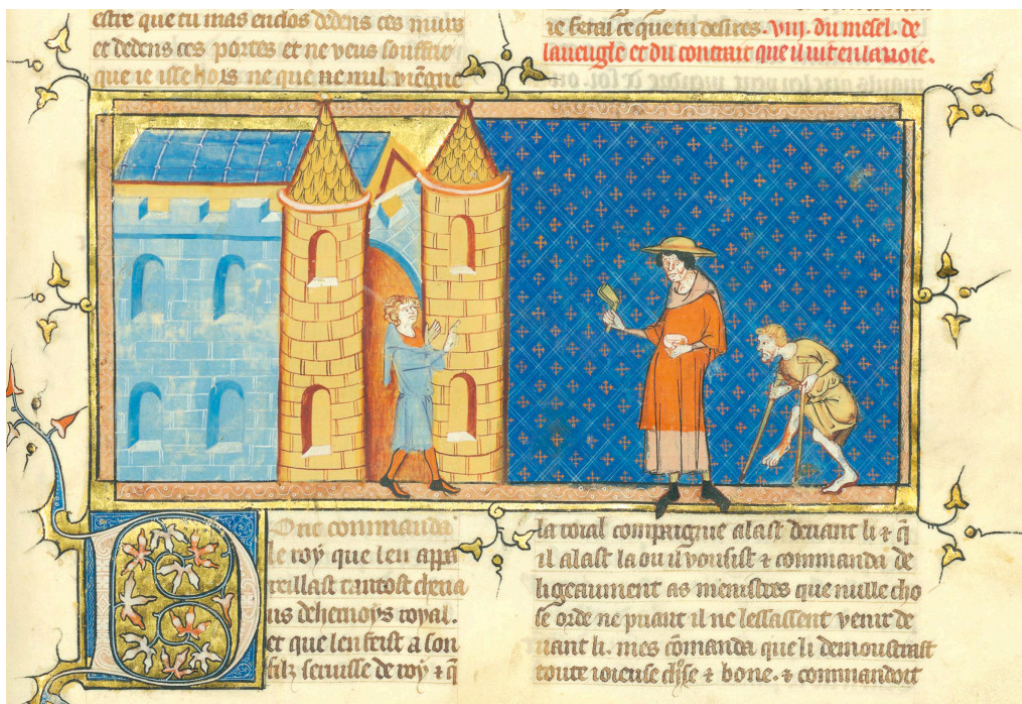 estre que tu mas enclos dedens ces murs
et dedens ces portes et ne veus souffrir
que ie isse hors ne que ne nul viẽgne
ie ferai ce que tu desires. viij. du mesel. de
laueugle et du contrait que il vit en la voie.
Donc commanda
le roy que len appa
reillast tantost cheua
us de hernoys royal.
et que len feist a son
filz seruise de roy ⁊ q̃
la roial compaignie alast deuant li ⁊ q̃
il alast la ou il vousist ⁊ commanda de
ligeaument as menistres que nulle cho
se orde ne puant il ne lessassent venir de
uant li. mes cõmanda que li demonstrast
toute ioieuse chose ⁊ bone. ⁊ commandoit